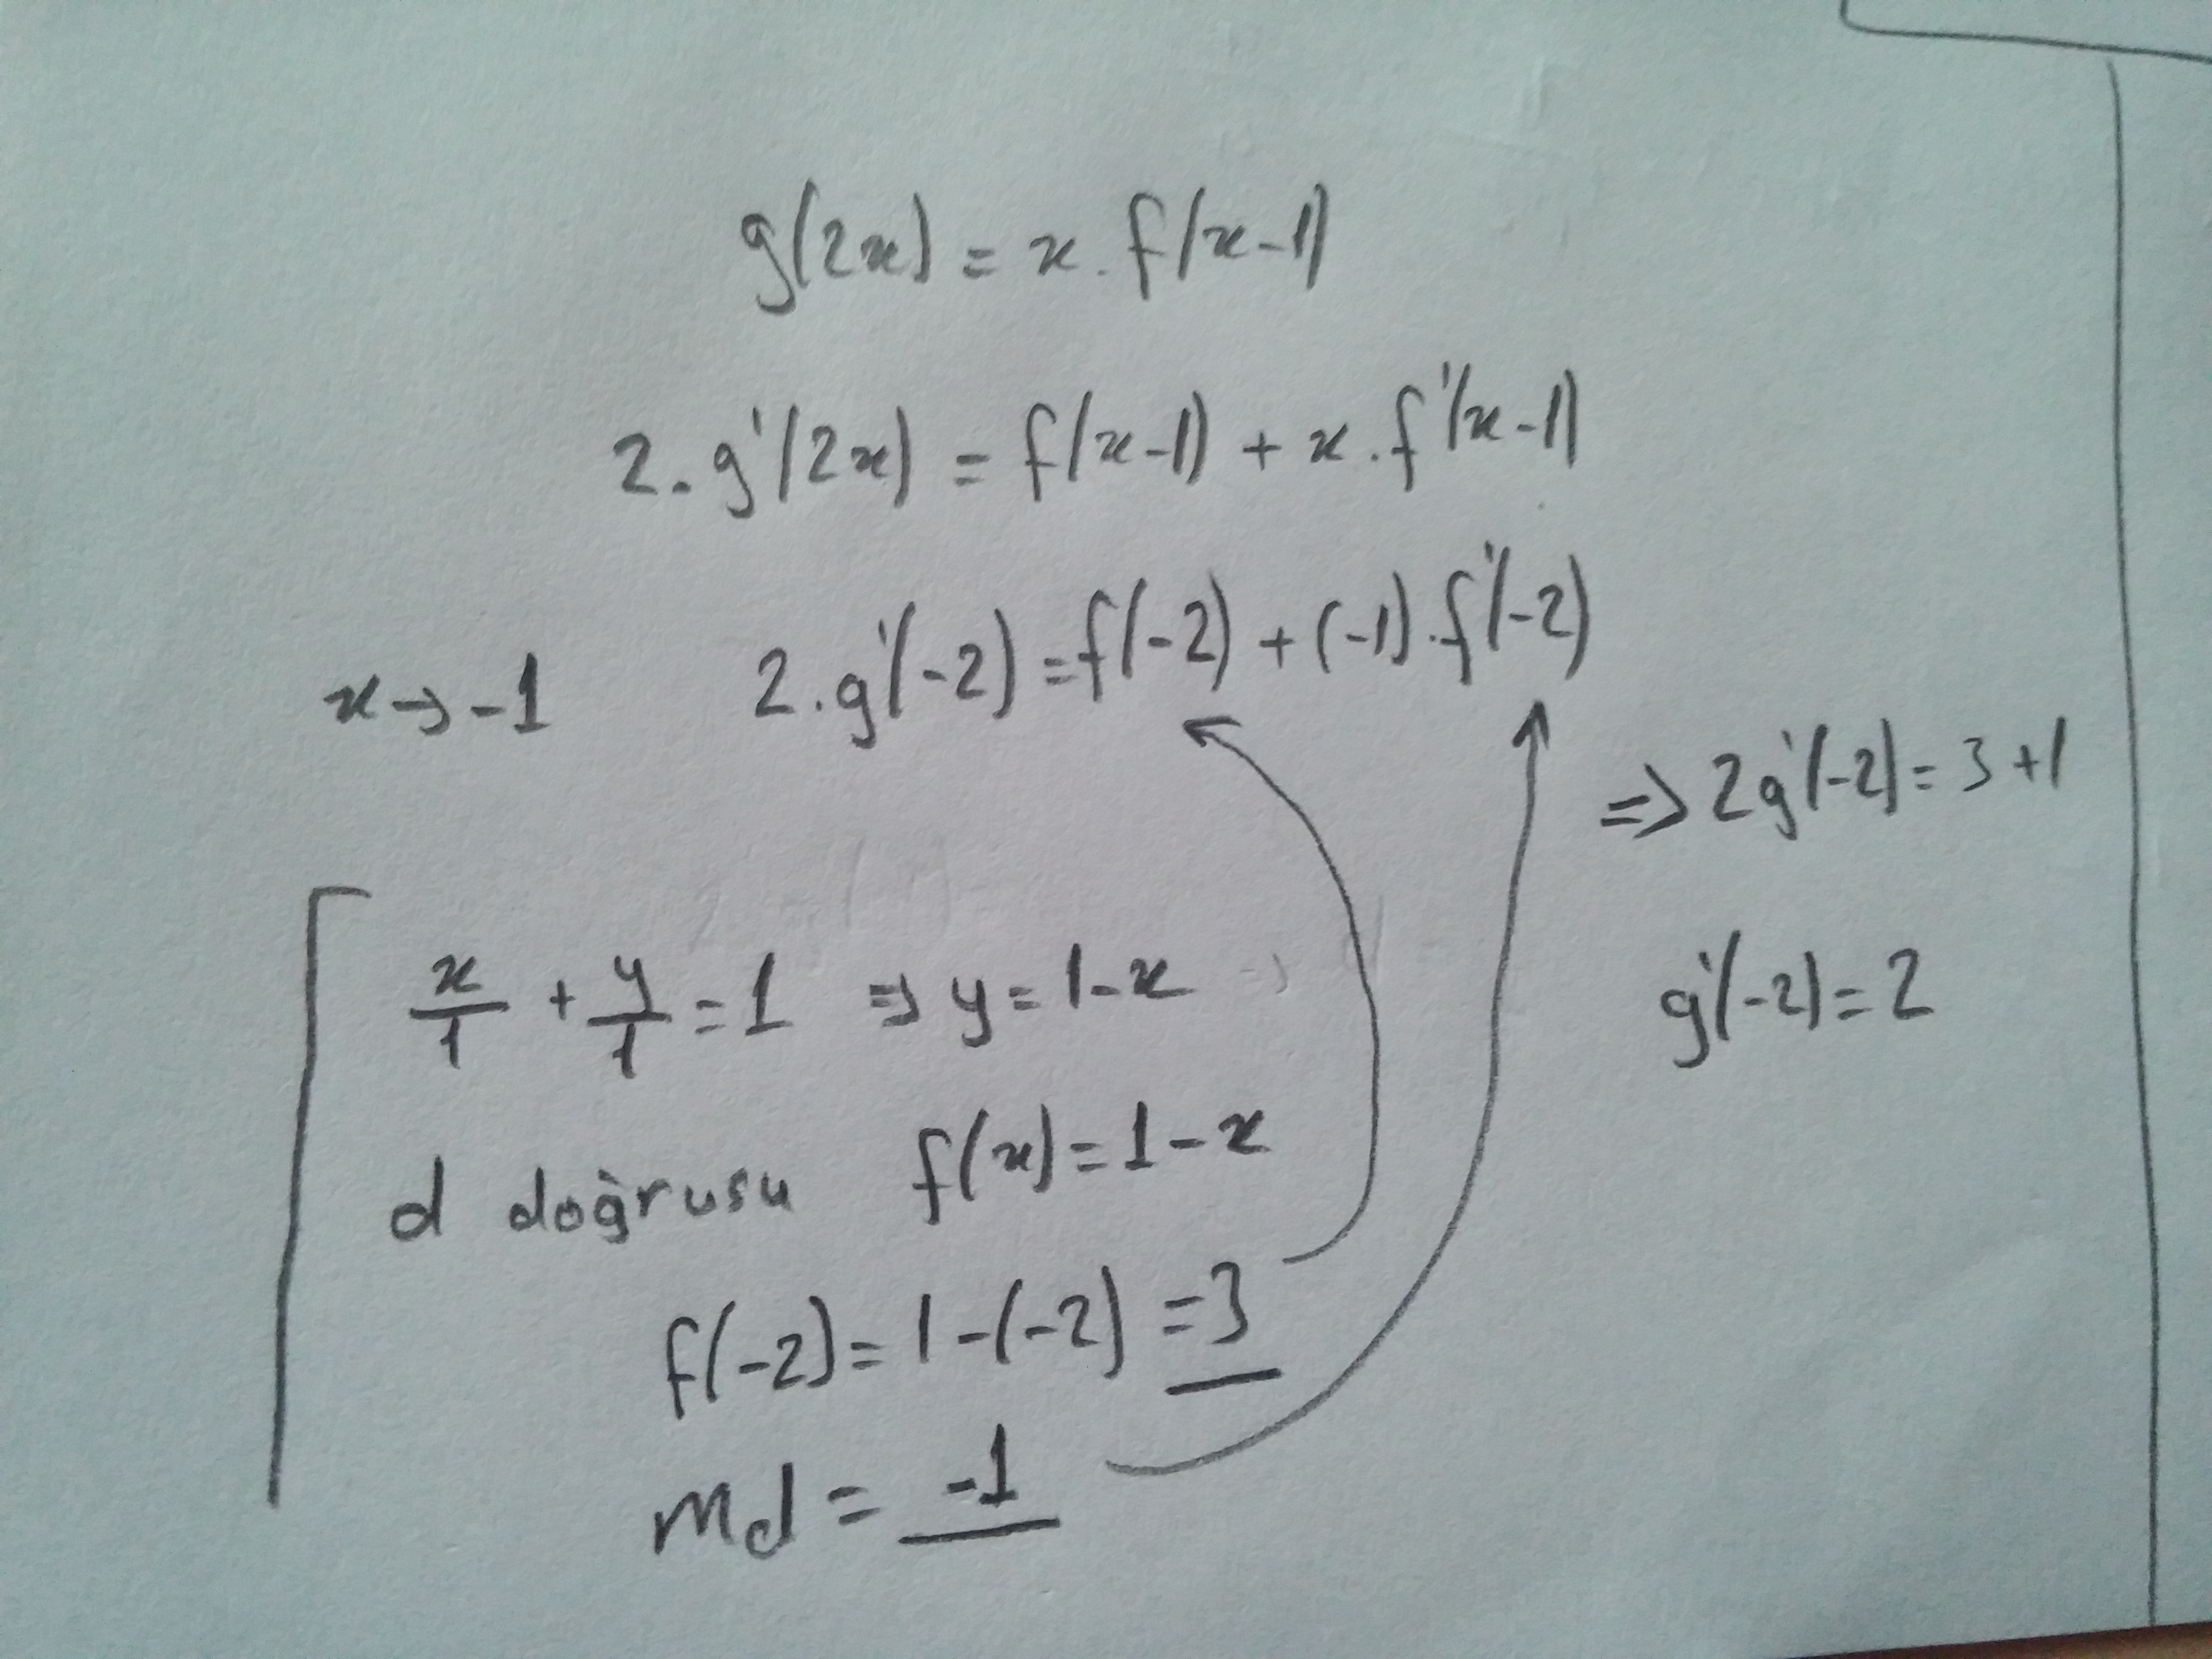 g(2x) = x . f(x-1)
2. g'(2x) = f(x-1) + x . f'(x-1)
x → -1 2. g'(-2) = f(-2) + (-1) . f'(-2)
⇒ 2g'(-2) = 3 + 1
g'(-2) = 2
x/1 + y/1 = 1 ⇒ y = 1-x
d doğrusu f(x) = 1-x
f(-2) = 1-(-2) = 3
md = -1